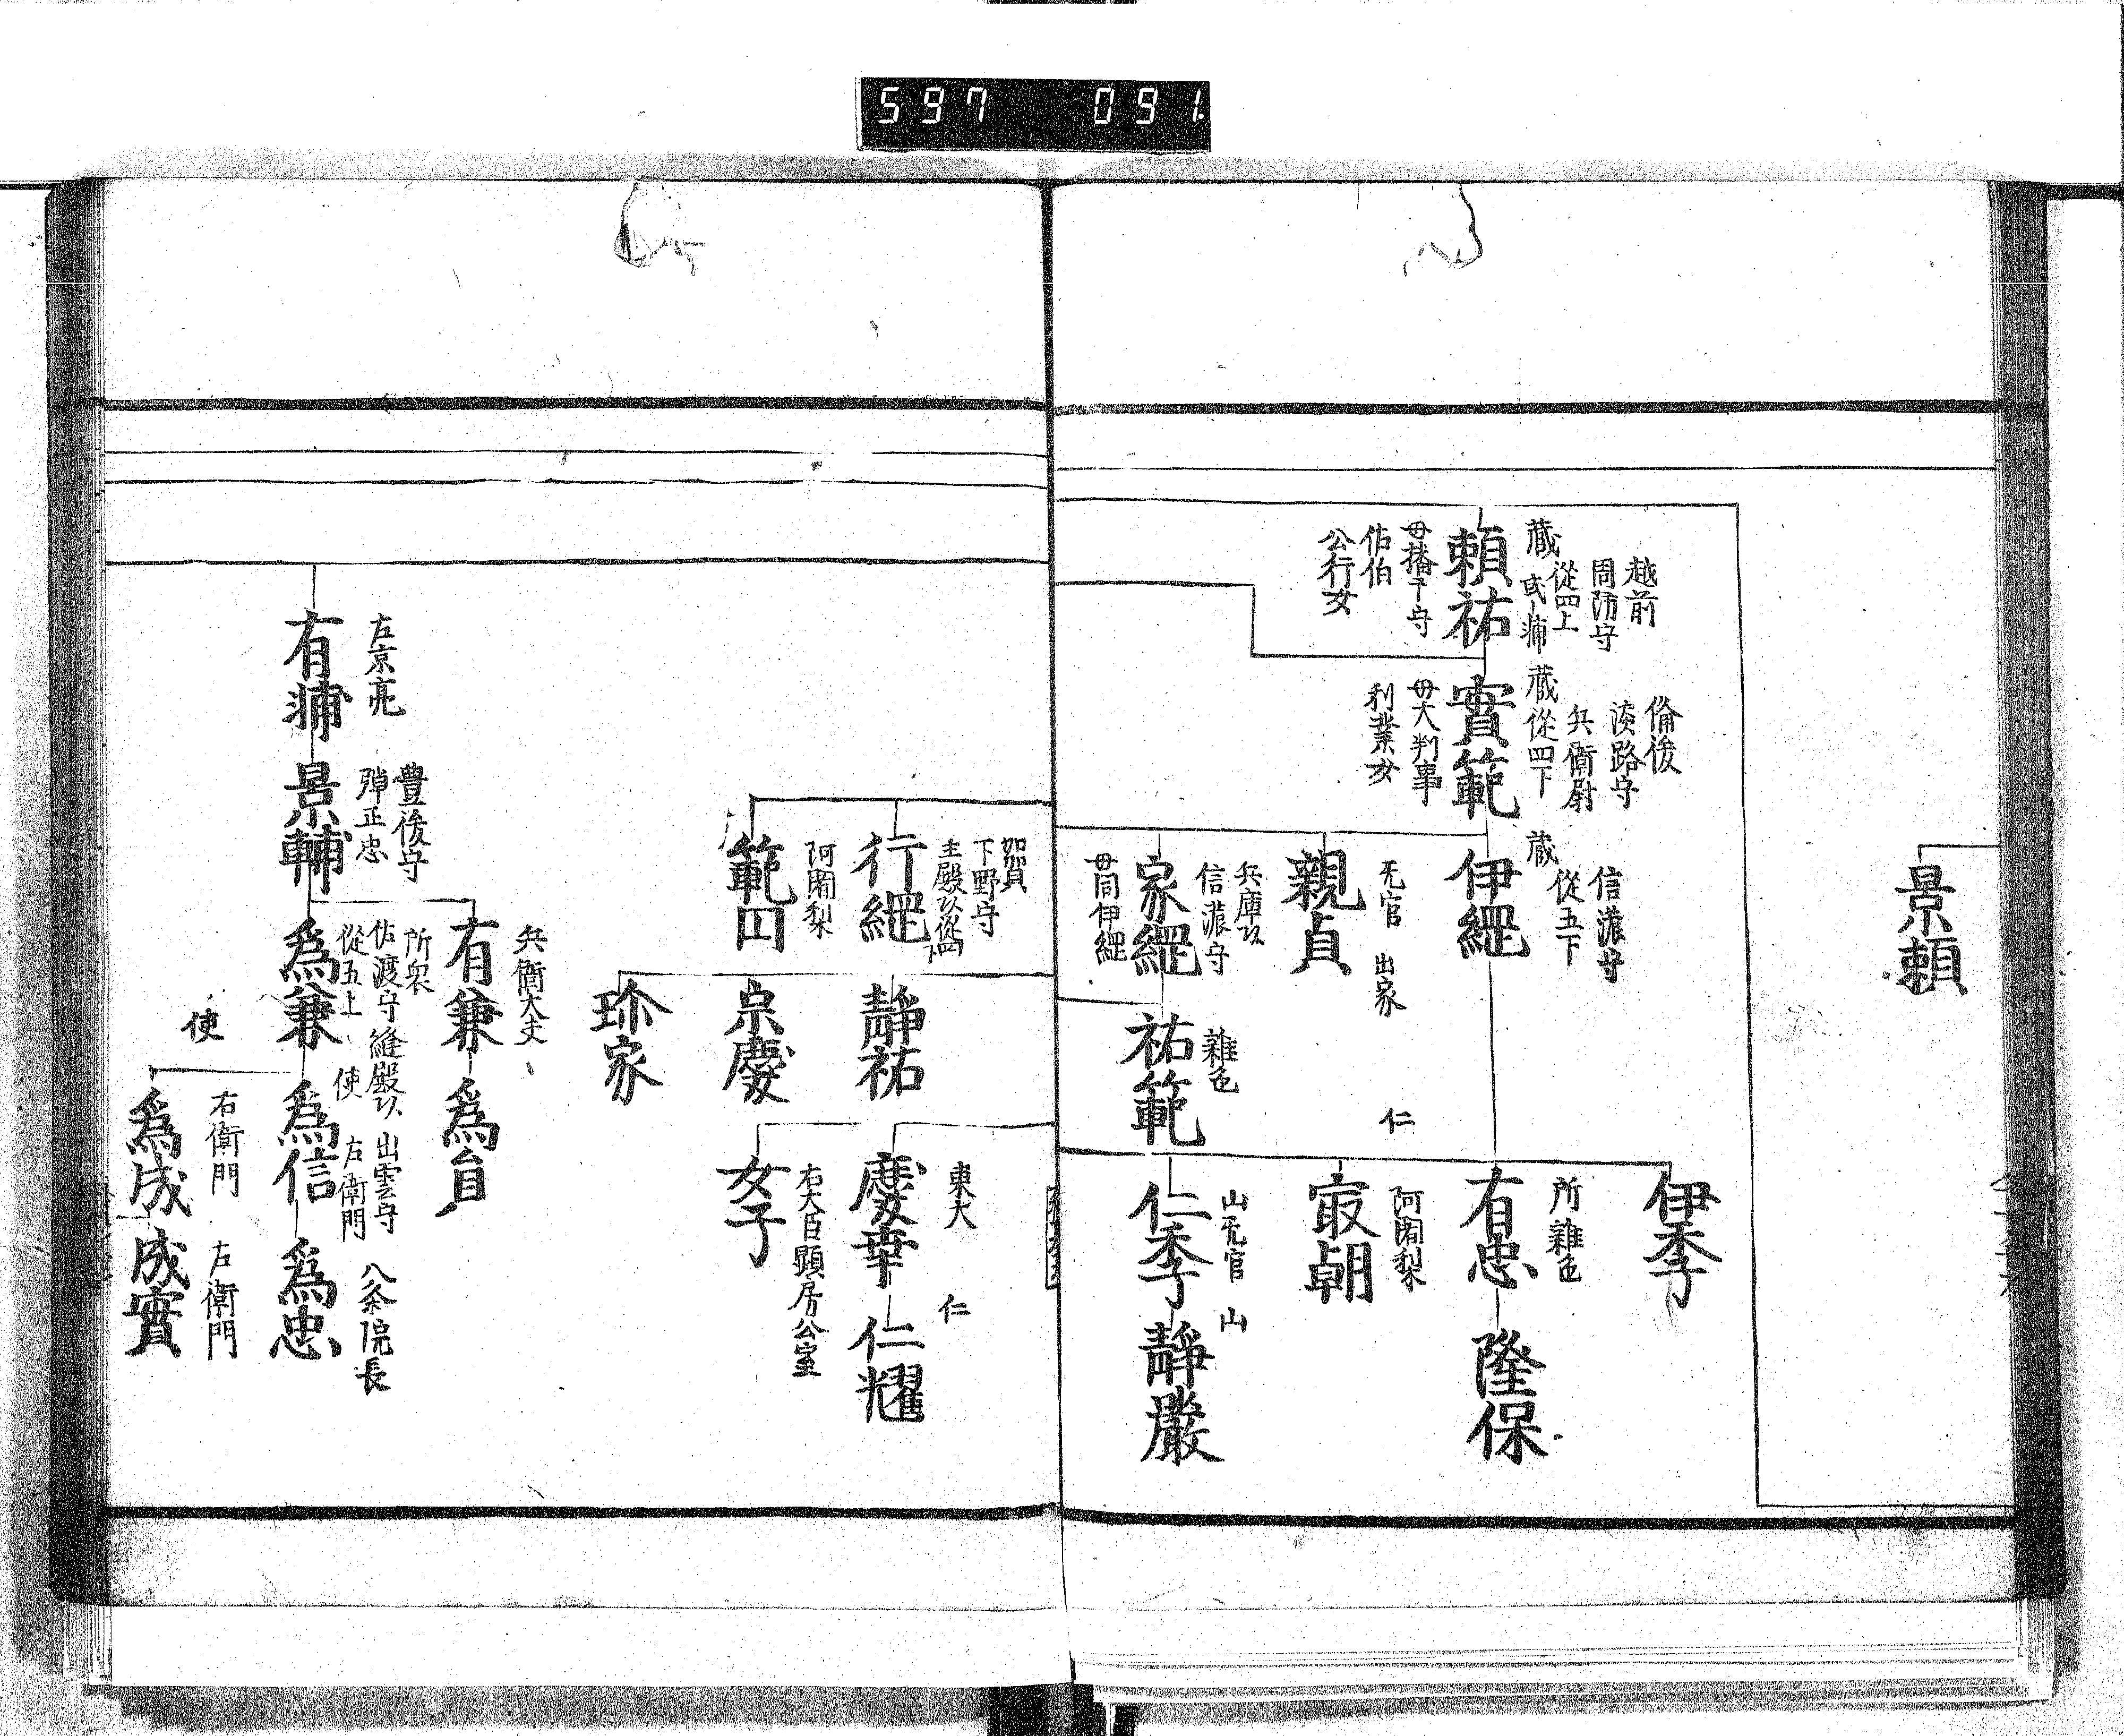 597 091
景頼
越前
周防守
從四上
蔵
頼祐
母播广守
佐伯
公行女
備後
淡路守
兵衛尉
蔵從四下
實範
母大判事
利業女
信濃守
從五下
蔵
伊綱
无官 出家
親貞
兵庫
信濃守
家綱
母同伊綱
雜色
祐範
伊季
所雜色
有忠
隆保
仁
阿闍梨
寂朝
山无官
仁季
山
靜嚴
加賀
下野守
主殿
行綱
阿闍梨
範円
靜祐
宗慶
珎家
東大
慶幸
仁
仁耀
右大臣顕房公室
女子
左京亮
有輔
豊後守
弾正忠
景輔
兵衛大夫
有兼
為貞
所衆
佐渡守
從五上
為兼
縫殿 出雲守
使 左衛門
為信
八条院長
為忠
使
右衛門
為成
左衛門
成實